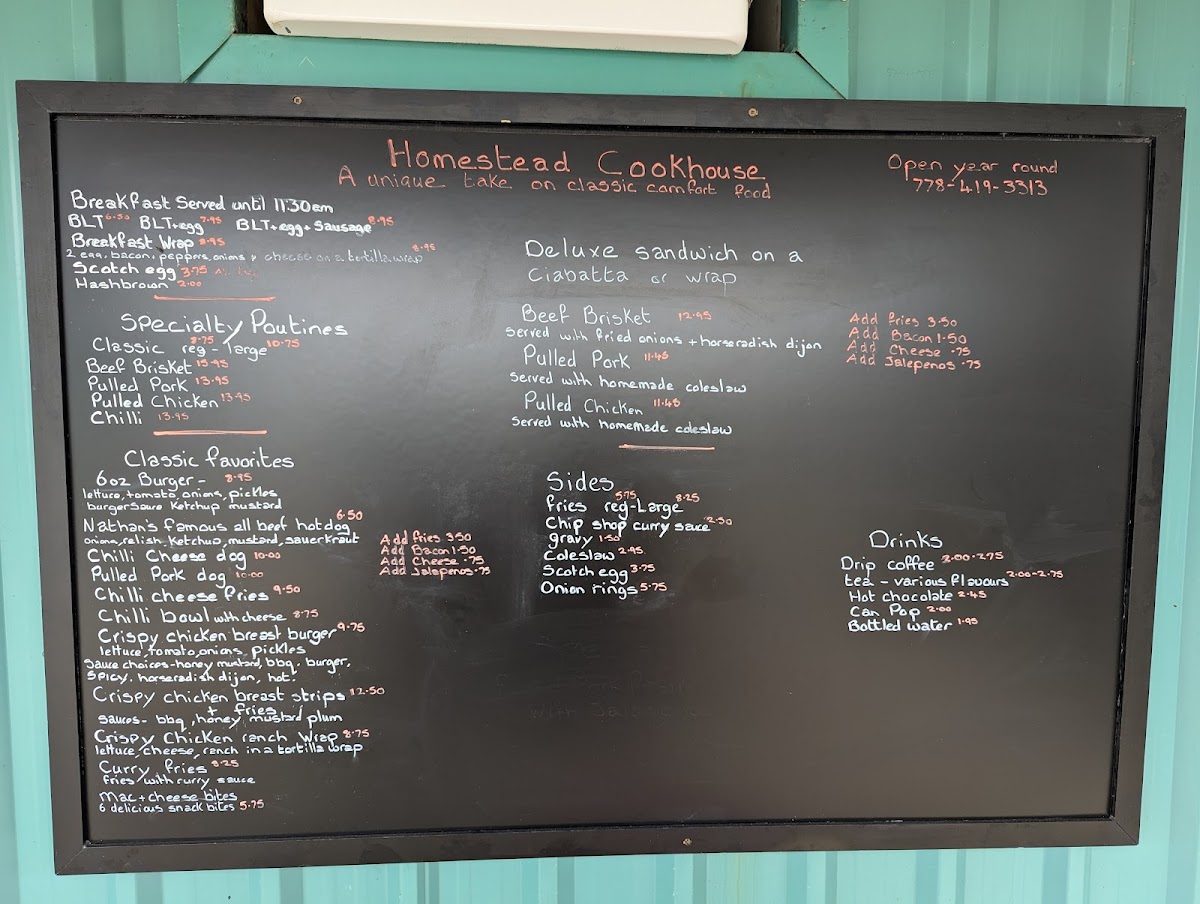 Homestead Cookhouse
A unique take on classic comfort food
Open year round
778-419-3313
Breakfast Served until 11:30am
BLT 6.50 BLT+egg 7.95 BLT+egg+Sausage 8.95
Breakfast Wrap 8.95
2 egg, bacon, peppers, onions & cheese on a tortilla wrap 8.95
Scotch egg 3.75
Hashbrown 2.00
Specialty Poutines
Classic reg - large 8.75 10.75
Beef Brisket 15.95
Pulled Pork 13.95
Pulled Chicken 13.95
Chilli 13.95
Classic favorites
6oz Burger - 8.95
lettuce, tomato, onions, pickles
burger sauce Ketchup mustard
Nathan's famous all beef hotdog 6.50
onions, relish, Ketchup, mustard, sauerkraut
Chilli Cheese dog 10.00
Pulled Pork dog 10.00
Chilli cheese fries 9.50
Chilli bowl with cheese 8.75
Crispy chicken breast burger 9.75
lettuce, tomato, onions, pickles
Sauce choices-honey mustard, bbq, burger,
Spicy, horseradish dijon, hot.
Crispy chicken breast strips 12.50
+ fries
sauces- bbq, honey, mustard plum
Crispy Chicken ranch Wrap 8.75
lettuce, cheese, ranch in a tortilla wrap
Curry fries 8.25
fries with curry sauce
Mac+cheese bites
6 delicious snack bites 5.75
Add fries 3.50
Add Bacon 1.50
Add Cheese .75
Add Jalepenos .75
Deluxe sandwich on a
Ciabatta or wrap
Beef Brisket 12.95
Served with fried onions + horseradish dijon
Pulled Pork 11.45
Served with homemade coleslaw
Pulled Chicken 11.45
Served with homemade coleslaw
Add fries 3.50
Add Bacon 1.50
Add Cheese .75
Add Jalepenos .75
Sides
fries reg-Large 5.75 8.25
Chip shop curry sauce 2.50
gravy 1.50
Coleslaw 2.95
Scotch egg 3.75
Onion rings 5.75
Drinks
Drip coffee 2.00-2.75
tea - various flavours 2.00-2.75
Hot chocolate 2.45
Can Pop 2.00
Bottled water 1.95